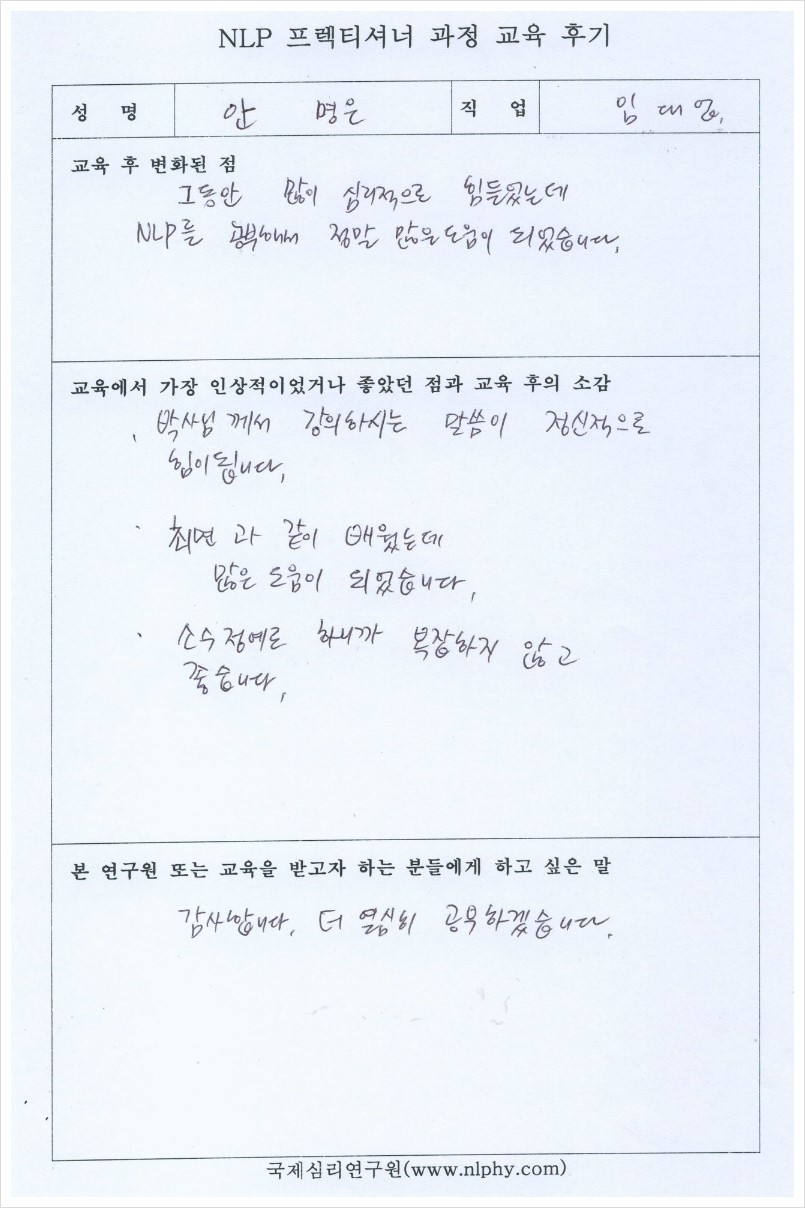 NLP 프렉티셔너 과정 교육 후기
성 명 안 명은 직 업 임 대 업.
교육 후 변화된 점
그동안 많이 심리적으로 힘들었는데
NLP를 공부해서 정말 많은 도움이 되었습니다.
교육에서 가장 인상적이었거나 좋았던 점과 교육 후의 소감
. 박사님 께서 강의하시는 말씀이 정신적으로
힘이됩니다.
· 최면 과 같이 배웠는데
많은 도움이 되었습니다.
· 소수정예로 하니까 복잡하지 않고
좋습니다.
본 연구원 또는 교육을 받고자 하는 분들에게 하고 싶은 말
감사합니다. 더 열심히 공부하겠습니다.
국제심리연구원(www.nlphy.com)